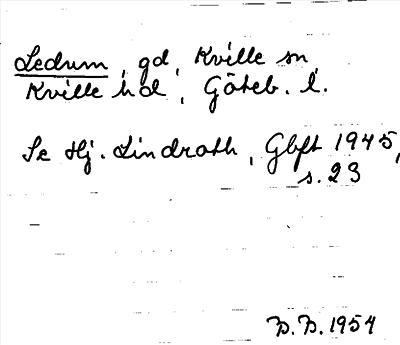 Ledum, gd, Kville sn,
Kville hd, Göteb. l.
Se Hj. Lindroth, Gbft 1945,
s. 23
B. B. 1954